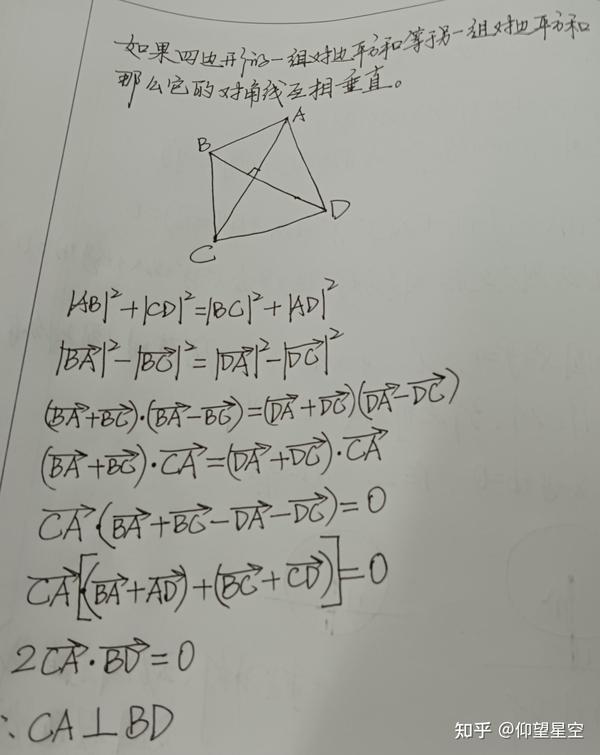 如果四边形的一组对边平方和等于另一组对边平方和
那么它的对角线互相垂直。
A
B
D
C
|AB|²+|CD|²=|BC|²+|AD|²
|BA⃗|²-|BC⃗|²=|DA⃗|²-|DC⃗|²
(BA⃗+BC⃗)·(BA⃗-BC⃗)=(DA⃗+DC⃗)(DA⃗-DC⃗)
(BA⃗+BC⃗)·CA⃗=(DA⃗+DC⃗)·CA⃗
CA⃗·(BA⃗+BC⃗-DA⃗-DC⃗)=0
CA⃗[(BA⃗+AD⃗)+(BC⃗+CD⃗)]=0
2CA⃗·BD⃗=0
∴CA⊥BD
知乎 @仰望星空